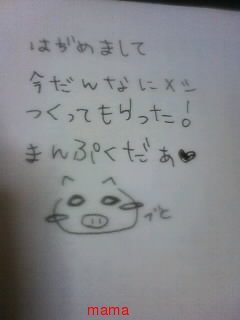 はがめまして
今だんなにメシ
つくってもらった!
まんぷくだぁ♥
ブヒ
mama